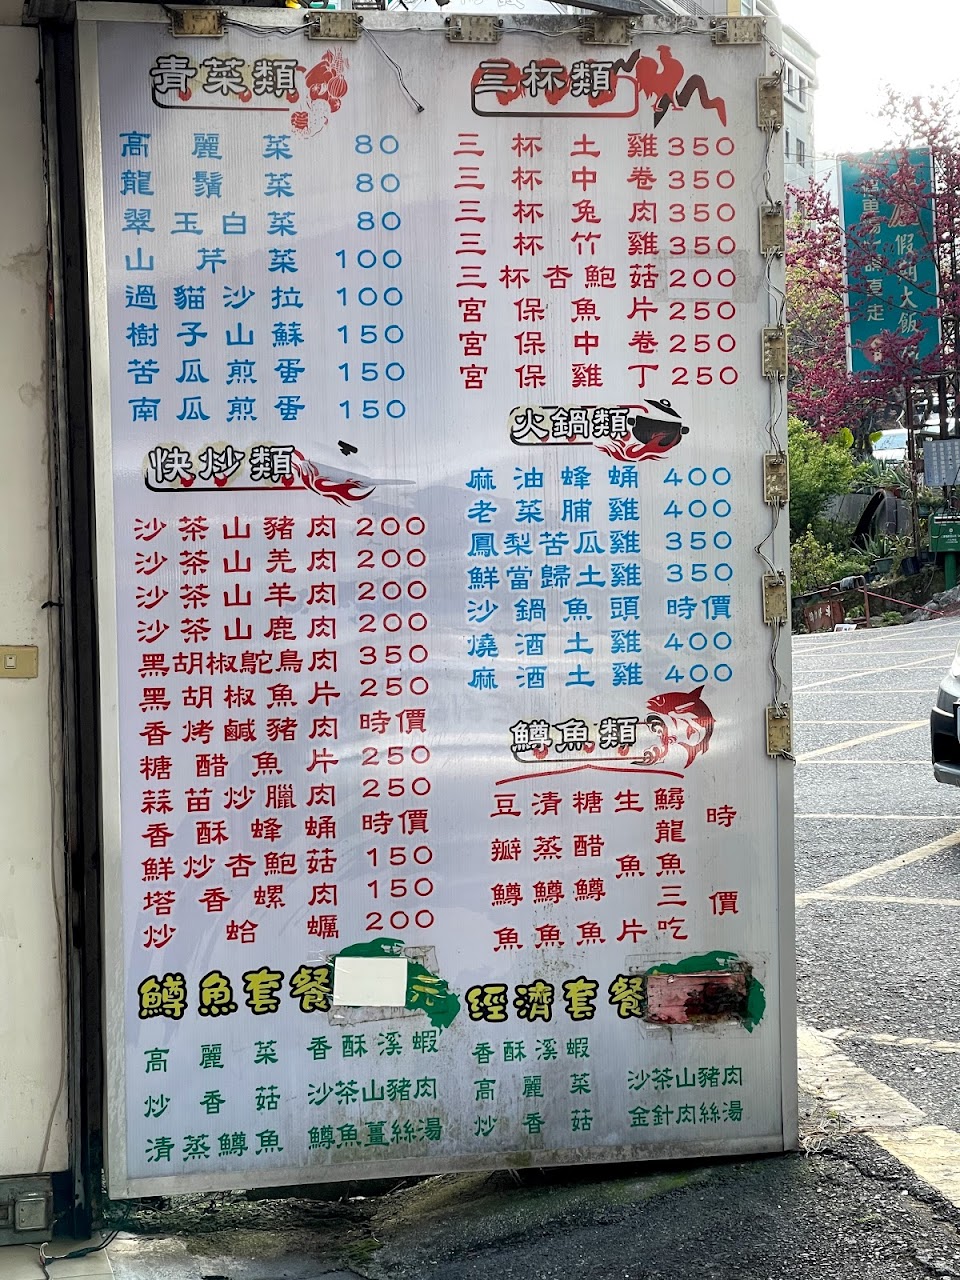 青菜類
高麗菜 80
龍鬚菜 80
翠玉白菜 80
山芹菜 100
過貓沙拉 100
樹子山蘇 150
苦瓜煎蛋 150
南瓜煎蛋 150
快炒類
沙茶山豬肉 200
沙茶山羌肉 200
沙茶山羊肉 200
沙茶山鹿肉 200
黑胡椒鴕鳥肉 350
黑胡椒魚片 250
香烤鹹豬肉 時價
糖醋魚片 250
蒜苗炒臘肉 250
香酥蜂蛹 時價
鮮炒杏鮑菇 150
塔香螺肉 150
炒蛤蠣 200
三杯類
三杯土雞 350
三杯中卷 350
三杯兔肉 350
三杯竹雞 350
三杯杏鮑菇 200
宮保魚片 250
宮保中卷 250
宮保雞丁 250
火鍋類
麻油蜂蛹 400
老菜脯雞 400
鳳梨苦瓜雞 350
鮮當歸土雞 350
沙鍋魚頭 時價
燒酒土雞 400
麻酒土雞 400
鱒魚類
豆瓣鱒魚
清蒸鱒魚
糖醋鱒魚
生魚片
鱘龍魚三吃
時價
鱒魚套餐 元
高麗菜 香酥溪蝦
炒香菇 沙茶山豬肉
清蒸鱒魚 鱒魚薑絲湯
經濟套餐
香酥溪蝦
高麗菜 沙茶山豬肉
炒香菇 金針肉絲湯
假期大飯